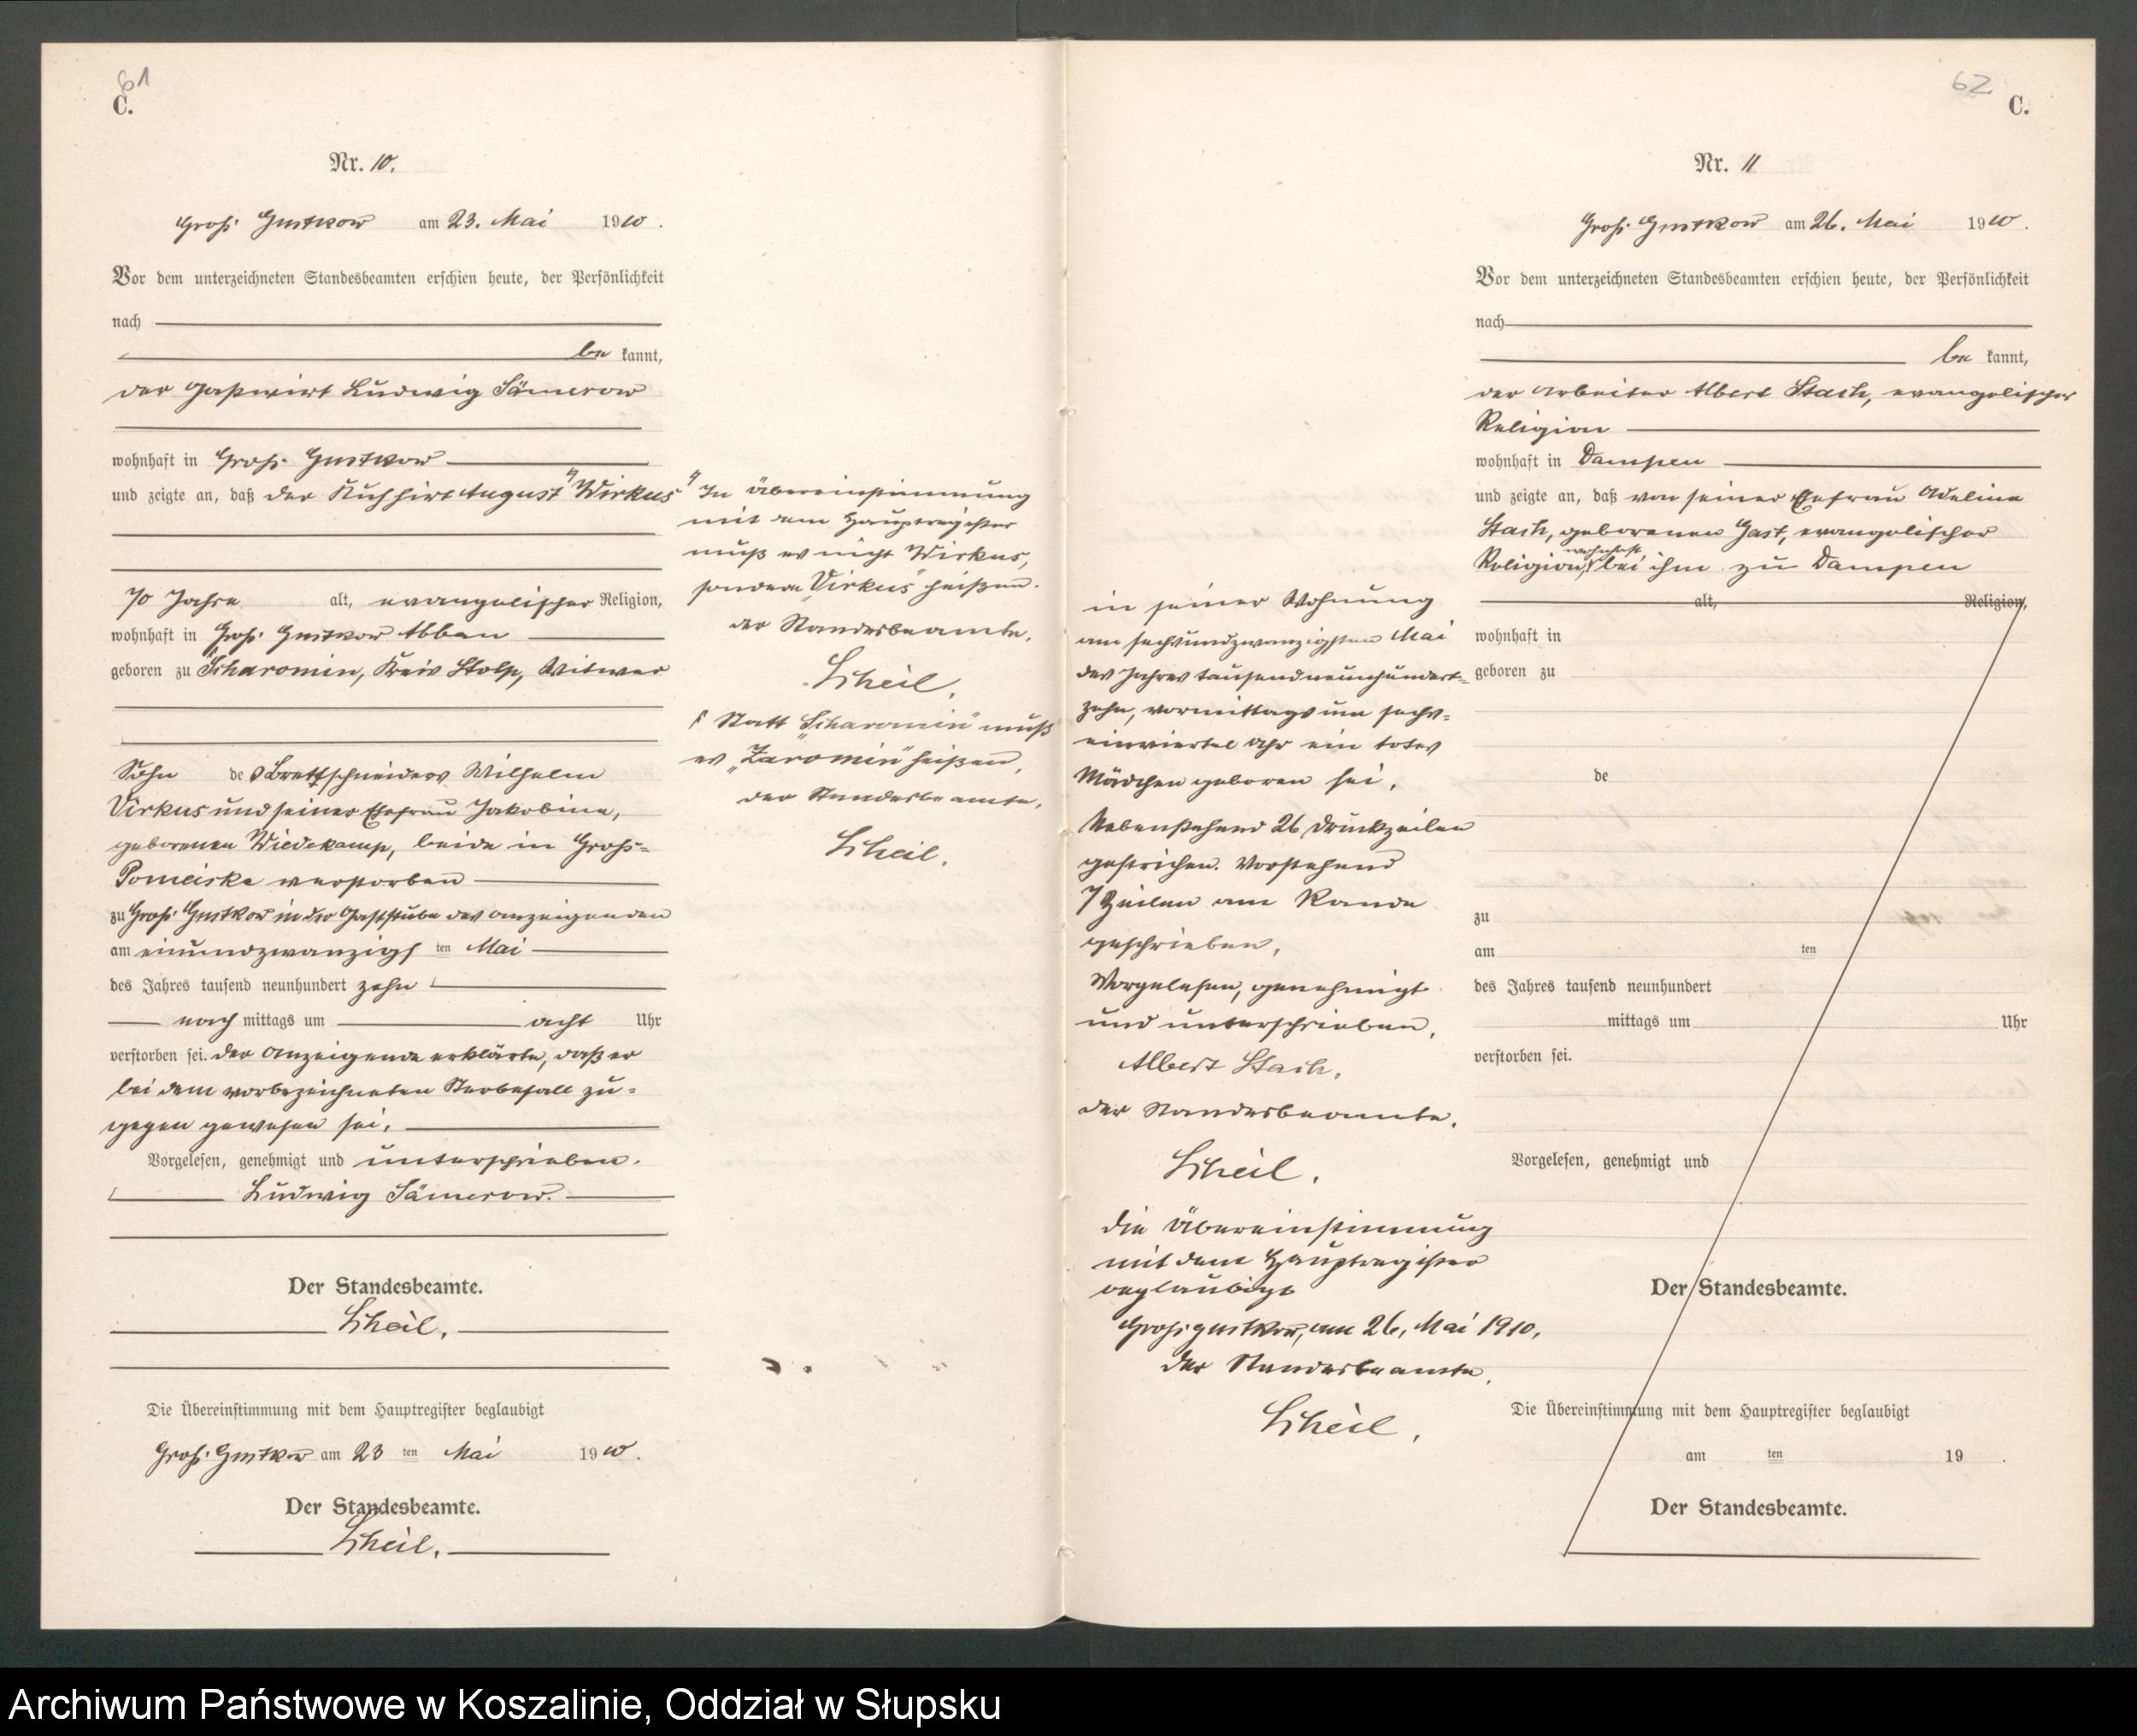 61
C.
Nr. 10.
Groß Gustkow am 23. Mai 1910.
Vor dem unterzeichneten Standesbeamten erschien heute, der Persönlichkeit
nach
be kannt,
der Gastwirt Ludwig Sämerow
wohnhaft in Groß Gustkow
und zeigte an, daß der Kuhhirt August Wirkus
70 Jahre alt, evangelischer Religion,
wohnhaft in Groß Gustkow Abbau
geboren zu Scharomin, Kreis Stolp, Witwer
Sohn des Brettschneiders Wilhelm
Virkus und seiner Ehefrau Jakobine,
geborenen Wiedekamp, beide in Groß=
Pomeiske verstorben
zu Groß Gustkow in der Gaststube des Anzeigenden
am einundzwanzigsten Mai
des Jahres tausend neunhundert zehn
nach mittags um acht Uhr
verstorben sei. Der Anzeigende erklärte, daß er
bei dem vorbezeichneten Sterbefall zu=
gegen gewesen sei.
Vorgelesen, genehmigt und unterschrieben.
Ludwig Sämerow.
Der Standesbeamte.
Scheil.
Die Übereinstimmung mit dem Hauptregister beglaubigt
Groß Gustkow am 23 ten Mai 1910.
Der Standesbeamte.
Scheil.
In Übereinstimmung
mit dem Hauptregister
muß es nicht Wirkus,
sondern „Virkus“ heißen.
Der Standesbeamte.
Scheil.
Statt „Scharomin“ muß
es „Zaromin“ heißen.
Der Standesbeamte.
Scheil.
62
C.
Nr. 11
Groß Gustkow am 26. Mai 1910.
Vor dem unterzeichneten Standesbeamten erschien heute, der Persönlichkeit
nach
be kannt,
der Arbeiter Albert Stach, evangelischer
Religion
wohnhaft in Dampen
und zeigte an, daß von seiner Ehefrau Adeline
Stach, geborenen Gast, evangelischer
wohnhaft
Religion, bei ihm zu Dampen
alt, Religion,
wohnhaft in
geboren zu
de
zu
am ten
des Jahres tausend neunhundert
mittags um Uhr
verstorben sei.
Vorgelesen, genehmigt und
Der Standesbeamte.
Die Übereinstimmung mit dem Hauptregister beglaubigt
am ten 19 .
Der Standesbeamte.
in seiner Wohnung
am sechsundzwanzigsten Mai
des Jahres tausendneunhundert=
zehn, vormittags um sechs=
einviertel Uhr ein totes
Mädchen geboren sei.
Nebenstehend 26 Druckzeilen
gestrichen. Vorstehend
7 Zeilen am Rande
geschrieben.
Vorgelesen, genehmigt
und unterschrieben.
Albert Stach.
Der Standesbeamte.
Scheil.
Die Übereinstimmung
mit dem Hauptregister
beglaubigt
Groß Gustkow, am 26. Mai 1910.
Der Standesbeamte.
Scheil.
Archiwum Państwowe w Koszalinie, Oddział w Słupsku